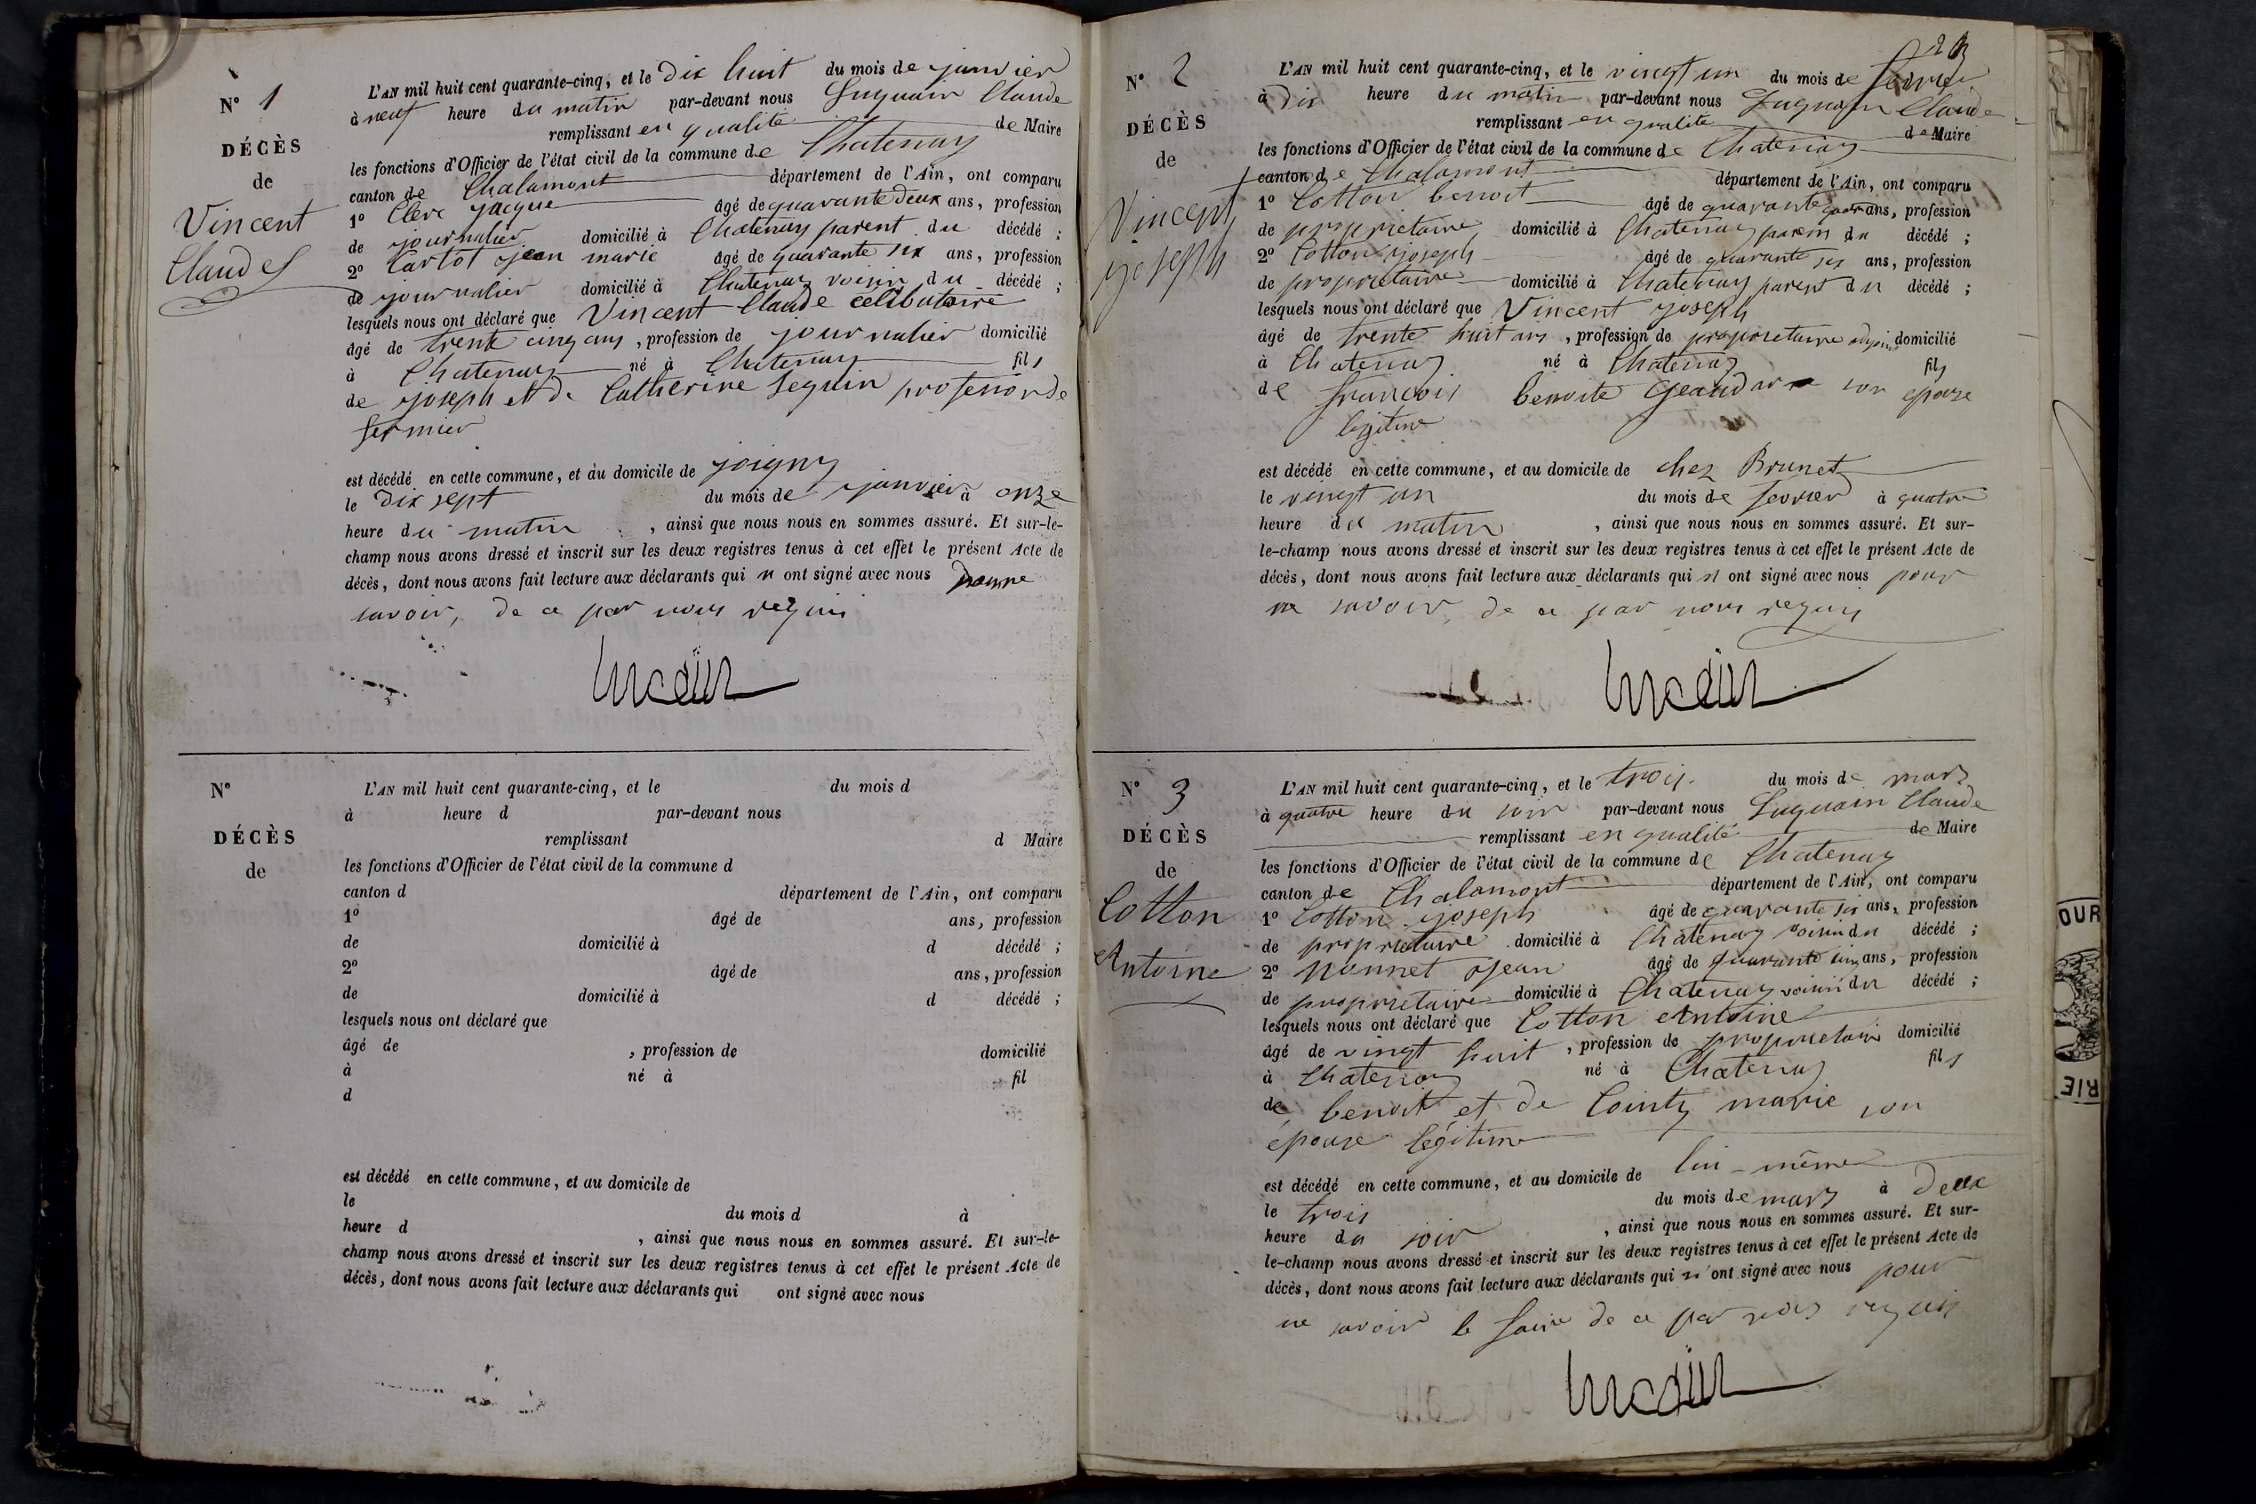 N° 1
DÉCÈS
de
Vincent
Claude
L'AN mil huit cent quarante-cinq, et le dix huit du mois de janvier
à neuf heure du matin par-devant nous Luquain Claude
remplissant en qualité de Maire
les fonctions d'Officier de l'état civil de la commune de Chatenay
canton de Chalamont département de l'Ain, ont comparu
1° Clerc jacque âgé de quarante deux ans, profession
de journalier domicilié à Chatenay parent du décédé ;
2° Cartot jean marie âgé de quarante six ans, profession
de journalier domicilié à Chatenay voisin du décédé ;
lesquels nous ont déclaré que Vincent Claude célibataire
âgé de trente cinq ans, profession de journalier domicilié
à Chatenay né à Chatenay fils
de joseph et de Catherine seguin profession de
fermier
est décédé en cette commune, et au domicile de joigny
le dix sept du mois de janvier à onze
heure du matin, ainsi que nous nous en sommes assuré. Et sur-le-
champ nous avons dressé et inscrit sur les deux registres tenus à cet effet le présent Acte de
décès, dont nous avons fait lecture aux déclarants qui n ont signé avec nous
savoir, de ce par nous requis
N°
DÉCÈS
de
L'AN mil huit cent quarante-cinq, et le du mois d
à heure d par-devant nous
remplissant d Maire
les fonctions d'Officier de l'état civil de la commune d
canton d département de l'Ain, ont comparu
1° âgé de ans, profession
de domicilié à d décédé ;
2° âgé de ans, profession
de domicilié à d décédé ;
lesquels nous ont déclaré que
âgé de , profession de domicilié
à né à fil
d
est décédé en cette commune, et au domicile de
le du mois d à
heure d , ainsi que nous nous en sommes assuré. Et sur-le-
champ nous avons dressé et inscrit sur les deux registres tenus à cet effet le présent Acte de
décès, dont nous avons fait lecture aux déclarants qui ont signé avec nous
N° 2
DÉCÈS
de
Vincent
joseph
L'AN mil huit cent quarante-cinq, et le vingt un du mois de fevrier
à dix heure du matin par-devant nous Luquain Claude
remplissant en qualité de Maire
les fonctions d'Officier de l'état civil de la commune de Chatenay
canton de Chalamont département de l'Ain, ont comparu
1° Cotton benoit âgé de quarante ans, profession
de proprietaire domicilié à Chatenay parent du décédé ;
2° Cotton joseph âgé de quarante six ans, profession
de proprietaire domicilié à Chatenay parent du décédé ;
lesquels nous ont déclaré que Vincent joseph
âgé de trente huit ans, profession de proprietaire domicilié
à Chatenay né à Chatenay fils
de francois benoite son epouse
legitime
est décédé en cette commune, et au domicile de chez Brunet
le vingt un du mois de fevrier à quatre
heure du matin, ainsi que nous nous en sommes assuré. Et sur-
le-champ nous avons dressé et inscrit sur les deux registres tenus à cet effet le présent Acte de
décès, dont nous avons fait lecture aux déclarants qui n ont signé avec nous pour
ne savoir, de ce par nous requis
N° 3
DÉCÈS
de
Cotton
Antoine
L'AN mil huit cent quarante-cinq, et le trois du mois de mars
à quatre heure du soir par-devant nous Luquain Claude
remplissant en qualité de Maire
les fonctions d'Officier de l'état civil de la commune de Chatenay
canton de Chalamont département de l'Ain, ont comparu
1° Cotton joseph âgé de quarante six ans, profession
de proprietaire domicilié à Chatenay voisin du décédé ;
2° nonnet jean âgé de quarante cinq ans, profession
de proprietaire domicilié à Chatenay voisin du décédé ;
lesquels nous ont déclaré que Cotton Antoine
âgé de vingt huit, profession de proprietaire domicilié
à Chatenay né à Chatenay fils
de benoit et de Cointy marie son
épouse légitime
est décédé en cette commune, et au domicile de lui-même
le trois du mois de mars à deux
heure du soir, ainsi que nous nous en sommes assuré. Et sur-
le-champ nous avons dressé et inscrit sur les deux registres tenus à cet effet le présent Acte de
décès, dont nous avons fait lecture aux déclarants qui n ont signé avec nous pour
ne savoir le faire de ce par nous requis
OUR
RIE